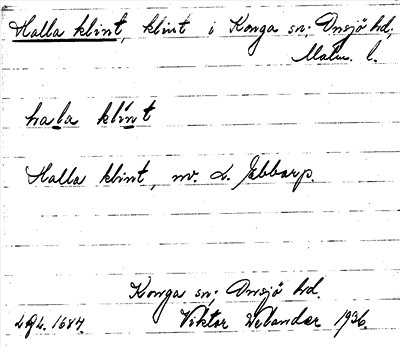 Halla klint, klint i Konga sn; Onsjö hd;
Malm. l.
hala klint
Halla klint, nv. L. Jabbarp.
Konga sn; Onsjö hd.
LGL. 1684. Viktor Welander 1936.